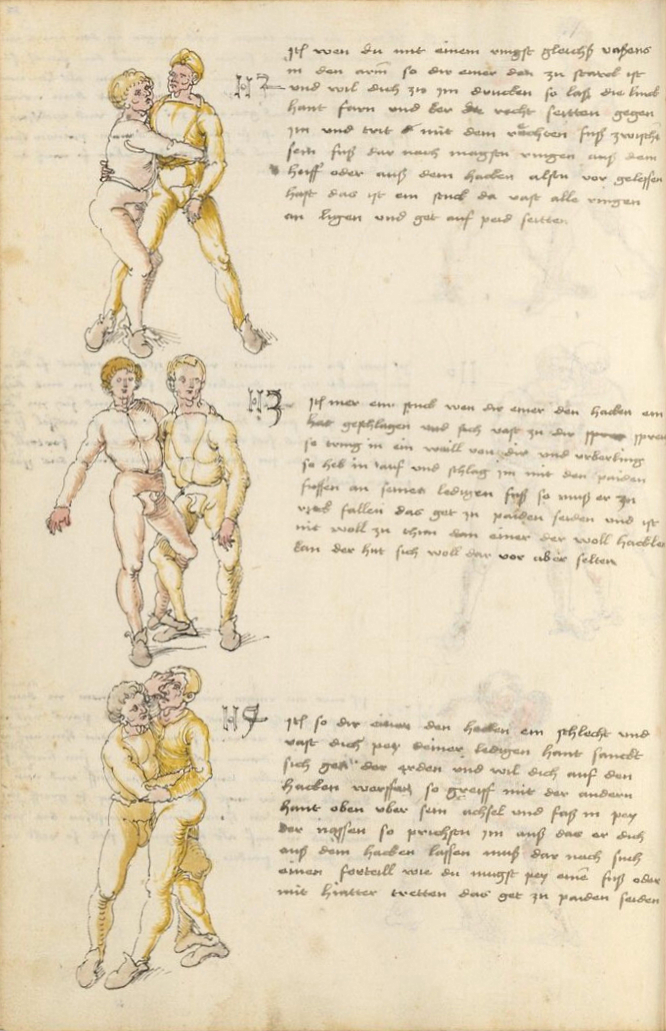 H 2
Itl wen du mit einem ringst gleichs vassens
in den arm so dir einer den zu starck ist
und wil dich zu im drucken so laß die linck
hant farn und ker die recht seitten gegen
im und trit mit dem rechten fuß zwischn
sein fuß dar nach magstu ringen auß dem
huff oder auß dem hacken alsen vor gelessen
hast das ist ein stuck da vast alle ringen
an ligen und get auf peid seitten
H 3
Itl mer ein stuck wen dir einer den hacken ein
hat geschlagen und sich vast zu dir
so tring in ein weill von dir und urbarling
so heb in auf und schlag im mit den paiden
fussen an seinen ledigen fuß so muß er zu
ruck fallen das get zu paiden seiden und ist
nit woll zu thun dan einer der woll hacklen
kan der hut sich woll dar vor aber selten
H 4
Itl so dir einer den hacken ein schlecht und
vast dich pey deiner ledigen hant sanckt
sich gen der erden und wil dich auf den
hacken werffen so greiff mit der andern
hant oben uber sein achsel und faß in pey
der nassen so prichstu im auß das er dich
auß dem hacken lassen muß dar nach such
einen forteill wie du mugst pey einem fuß oder
mit hinter tretten das get zu paiden seiden